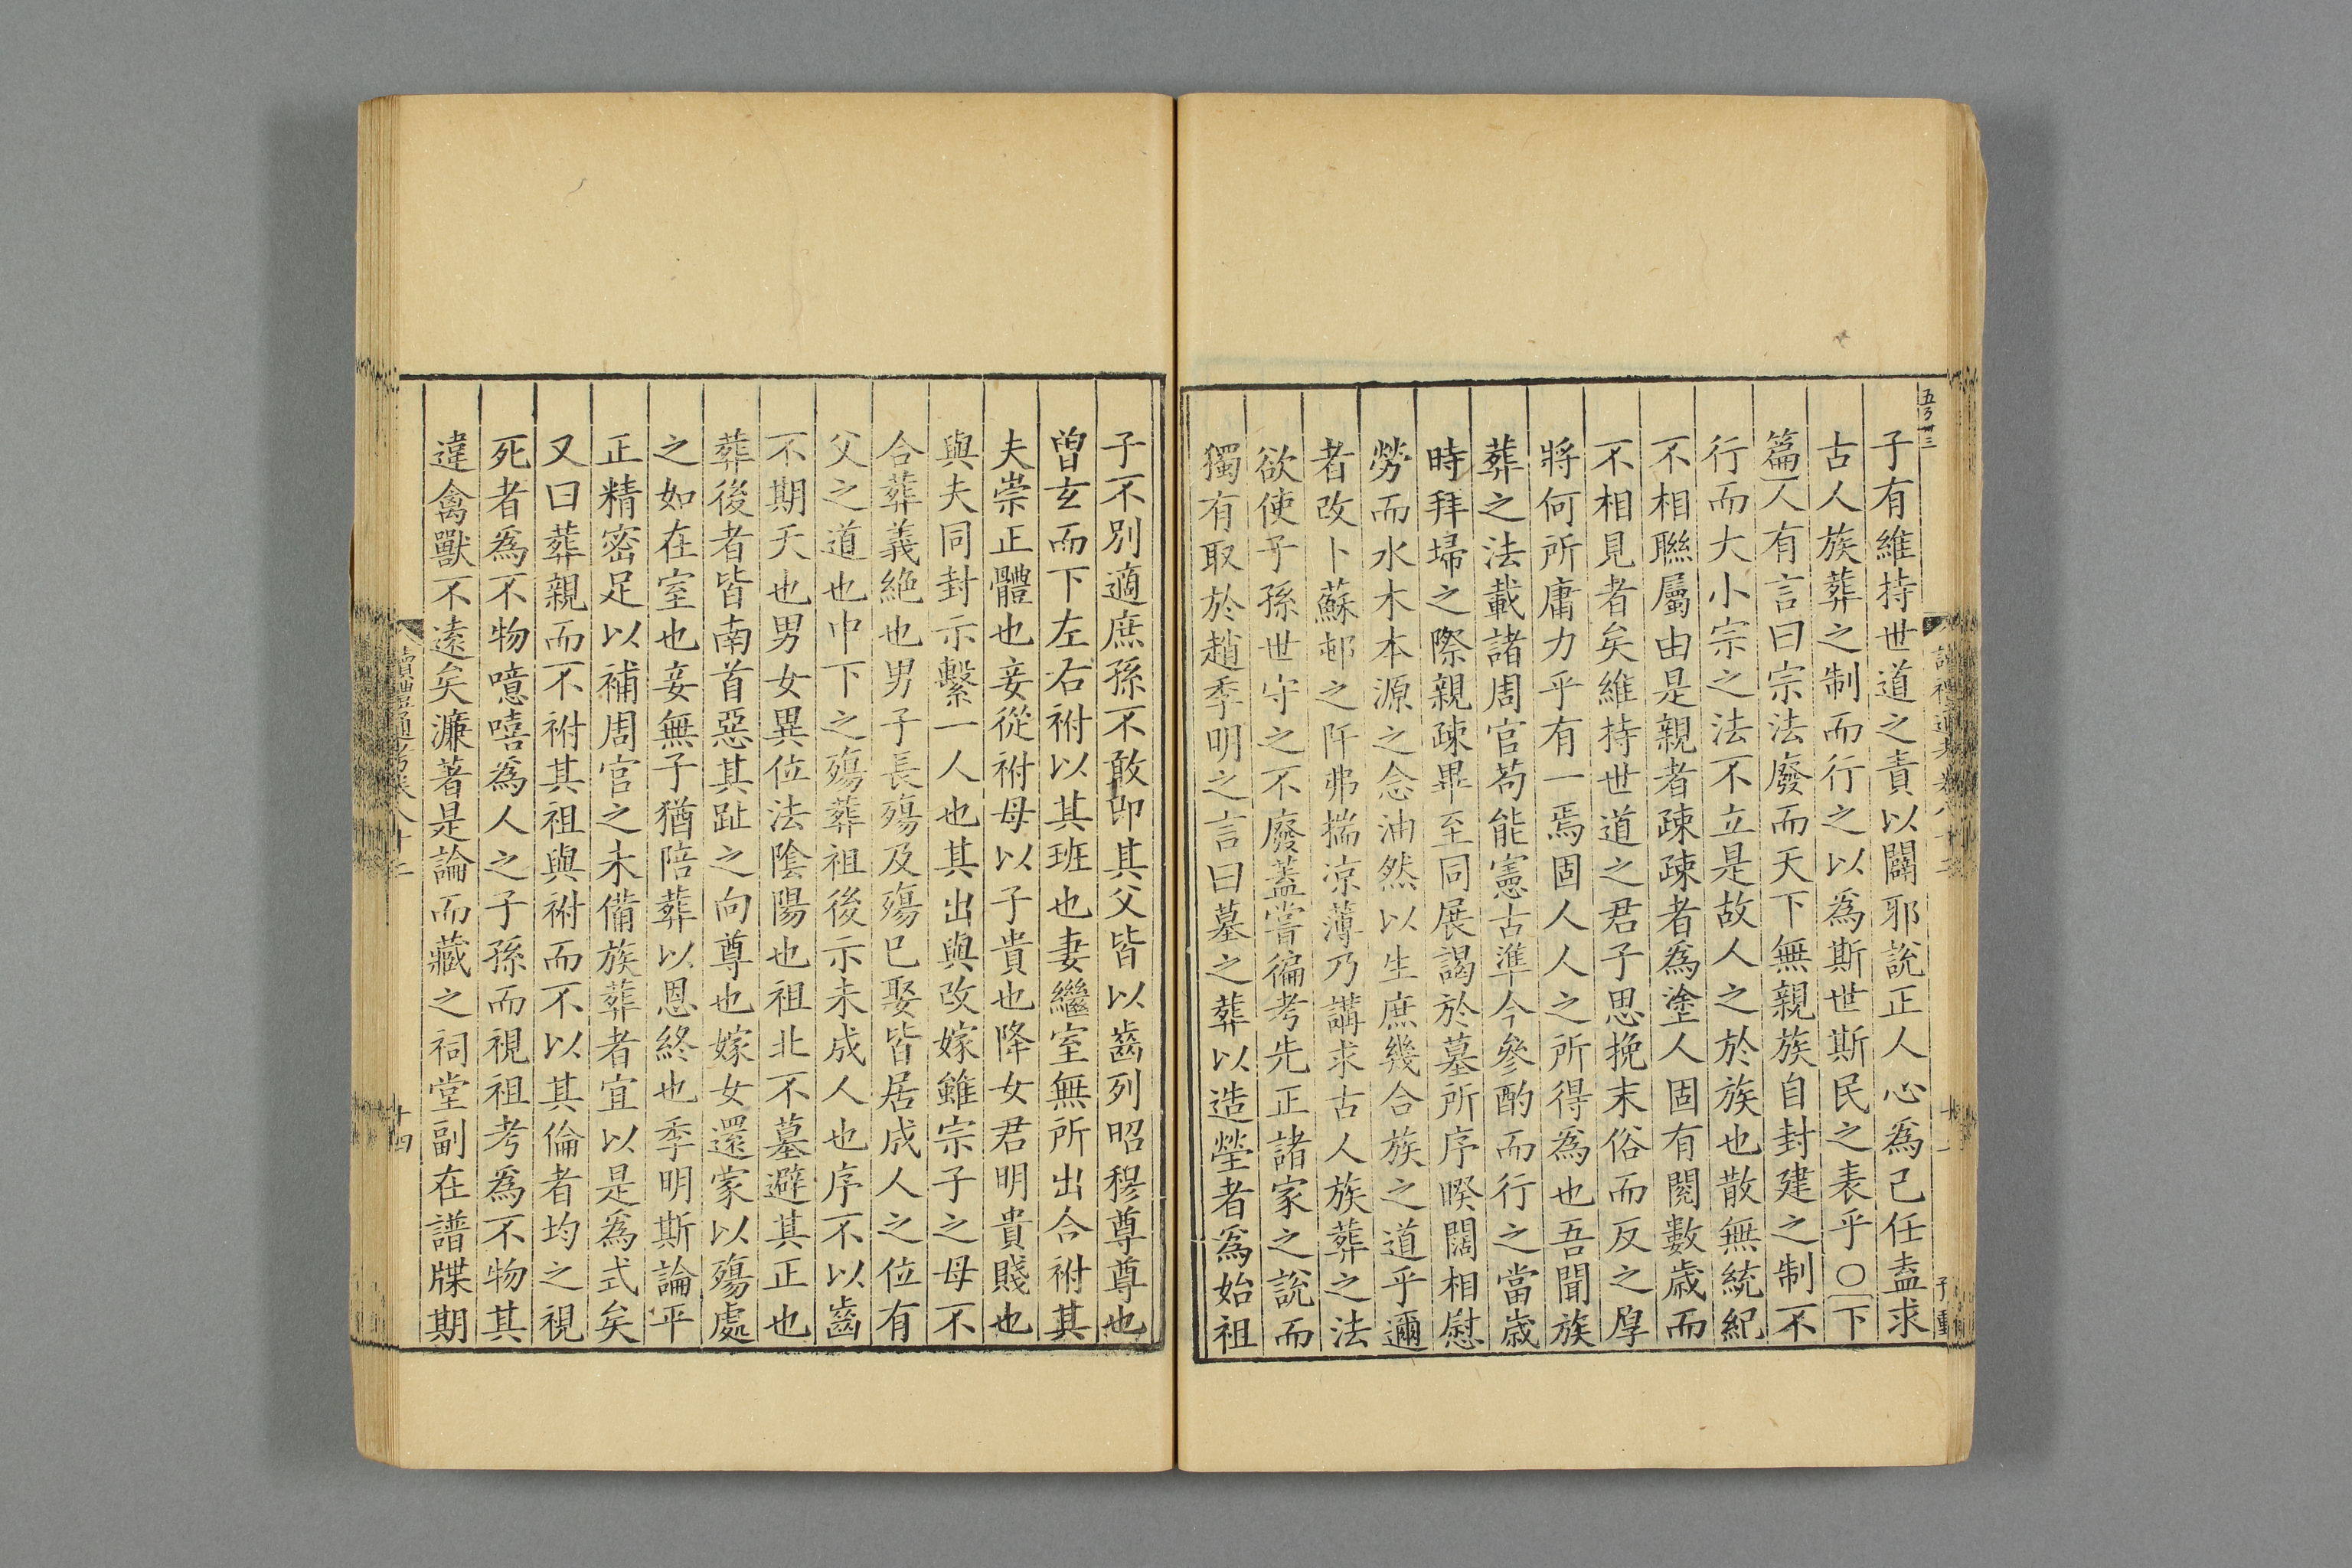 子有維持世道之責以闢邪說正人心為己任盍求
古人族葬之制而行之以為斯世斯民之表乎〇下
篇人有言曰宗法廢而天下無親族自封建之制不
行而大小宗之法不立是故人之於族也散無統紀
不相聮屬由是親者疎疎者為塗人固有閱數歳而
不相見者矣維持世道之君子思挽末俗而反之厚
將何所庸力乎有一焉固人人之所得為也吾聞族
葬之法載諸周官茍能憲古準今參酌而行之當歳
時拜埽之際親疎畢至同展謁於墓所序暌闊相慰
勞而水木本源之念油然以生庶幾合族之道乎邇
者改卜蘇邨之阡弗揣凉薄乃講求古人族葬之法
欲使子孫世守之不廢蓋嘗徧考先正諸家之說而
獨有取於趙季明之言曰墓之葬以造塋者為始祖
子不別適庶孫不敢卽其父皆以齒列昭穆尊尊也
曾玄而下左右祔以其班也妻繼室無所出合祔其
夫崇正體也妾從祔母以子貴也降女君明貴賤也
與夫同封示繫一人也其出與改嫁雖宗子之母不
合葬義絶也男子長殤及殤已娶皆居成人之位有
父之道也中下之殤葬祖後示未成人也序不以齒
不期夭也男女異位法陰陽也祖北不墓避其正也
葬後者皆南首惡其趾之向尊也嫁女還家以殤處
之如在室也妾無子猶陪葬以恩終也季明斯論平
正精密足以補周官之未備族葬者宜以是為式矣
又曰葬親而不祔其祖與祔而不以其倫者均之視
死者為不物噫嘻為人之子孫而視祖考為不物其
違禽獸不遠矣濂著是論而藏之祠堂副在譜牒期
讀禮通考卷八十二
十四